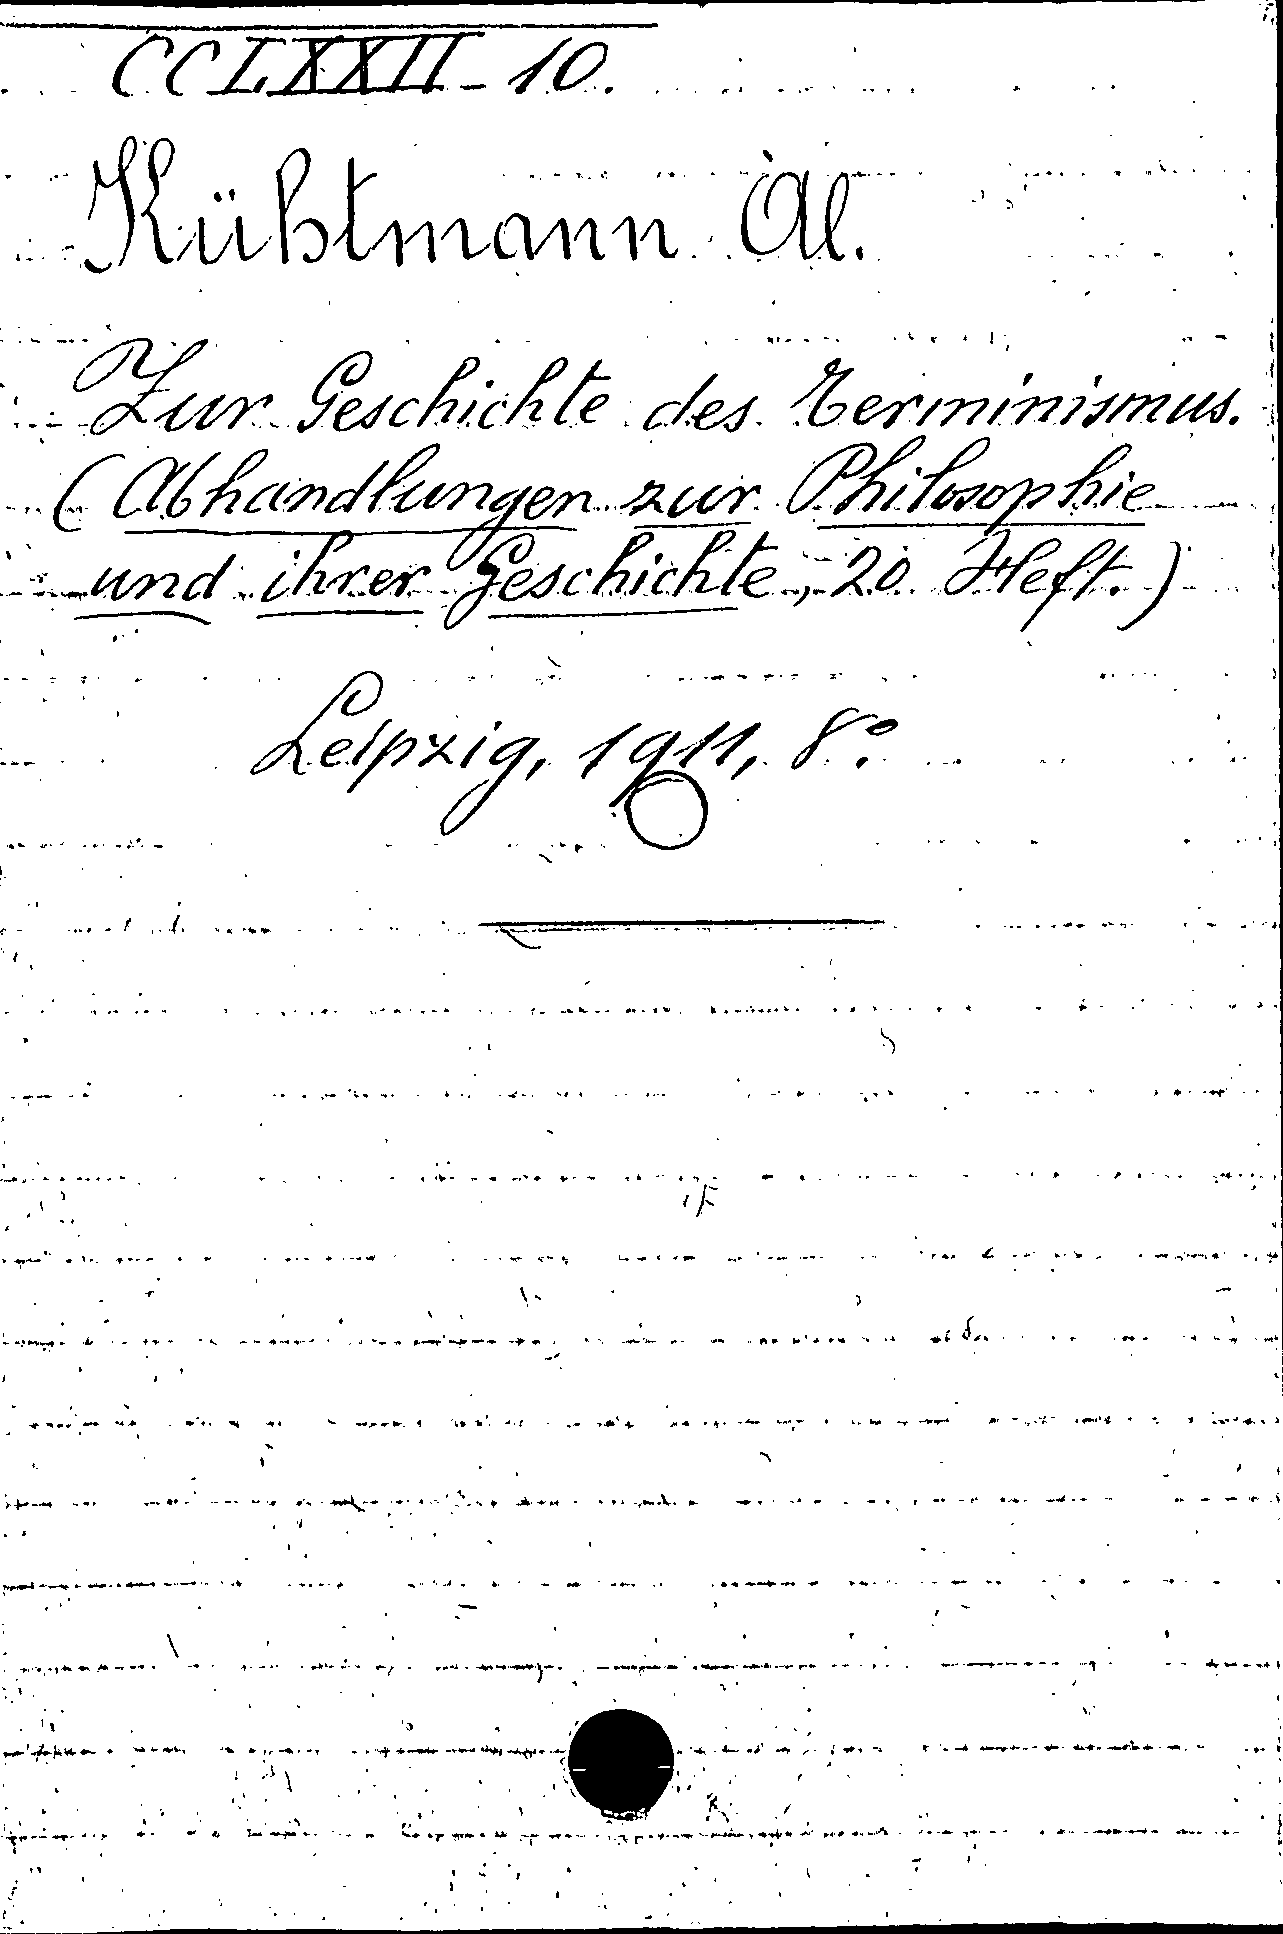 CCLXXII-10.
Kühtmann Al.
Zur Geschichte des Terminismus.
(Abhandlungen zur Philosophie
und ihrer Geschichte, 20. Heft.)
Leipzig, 1911, 8º